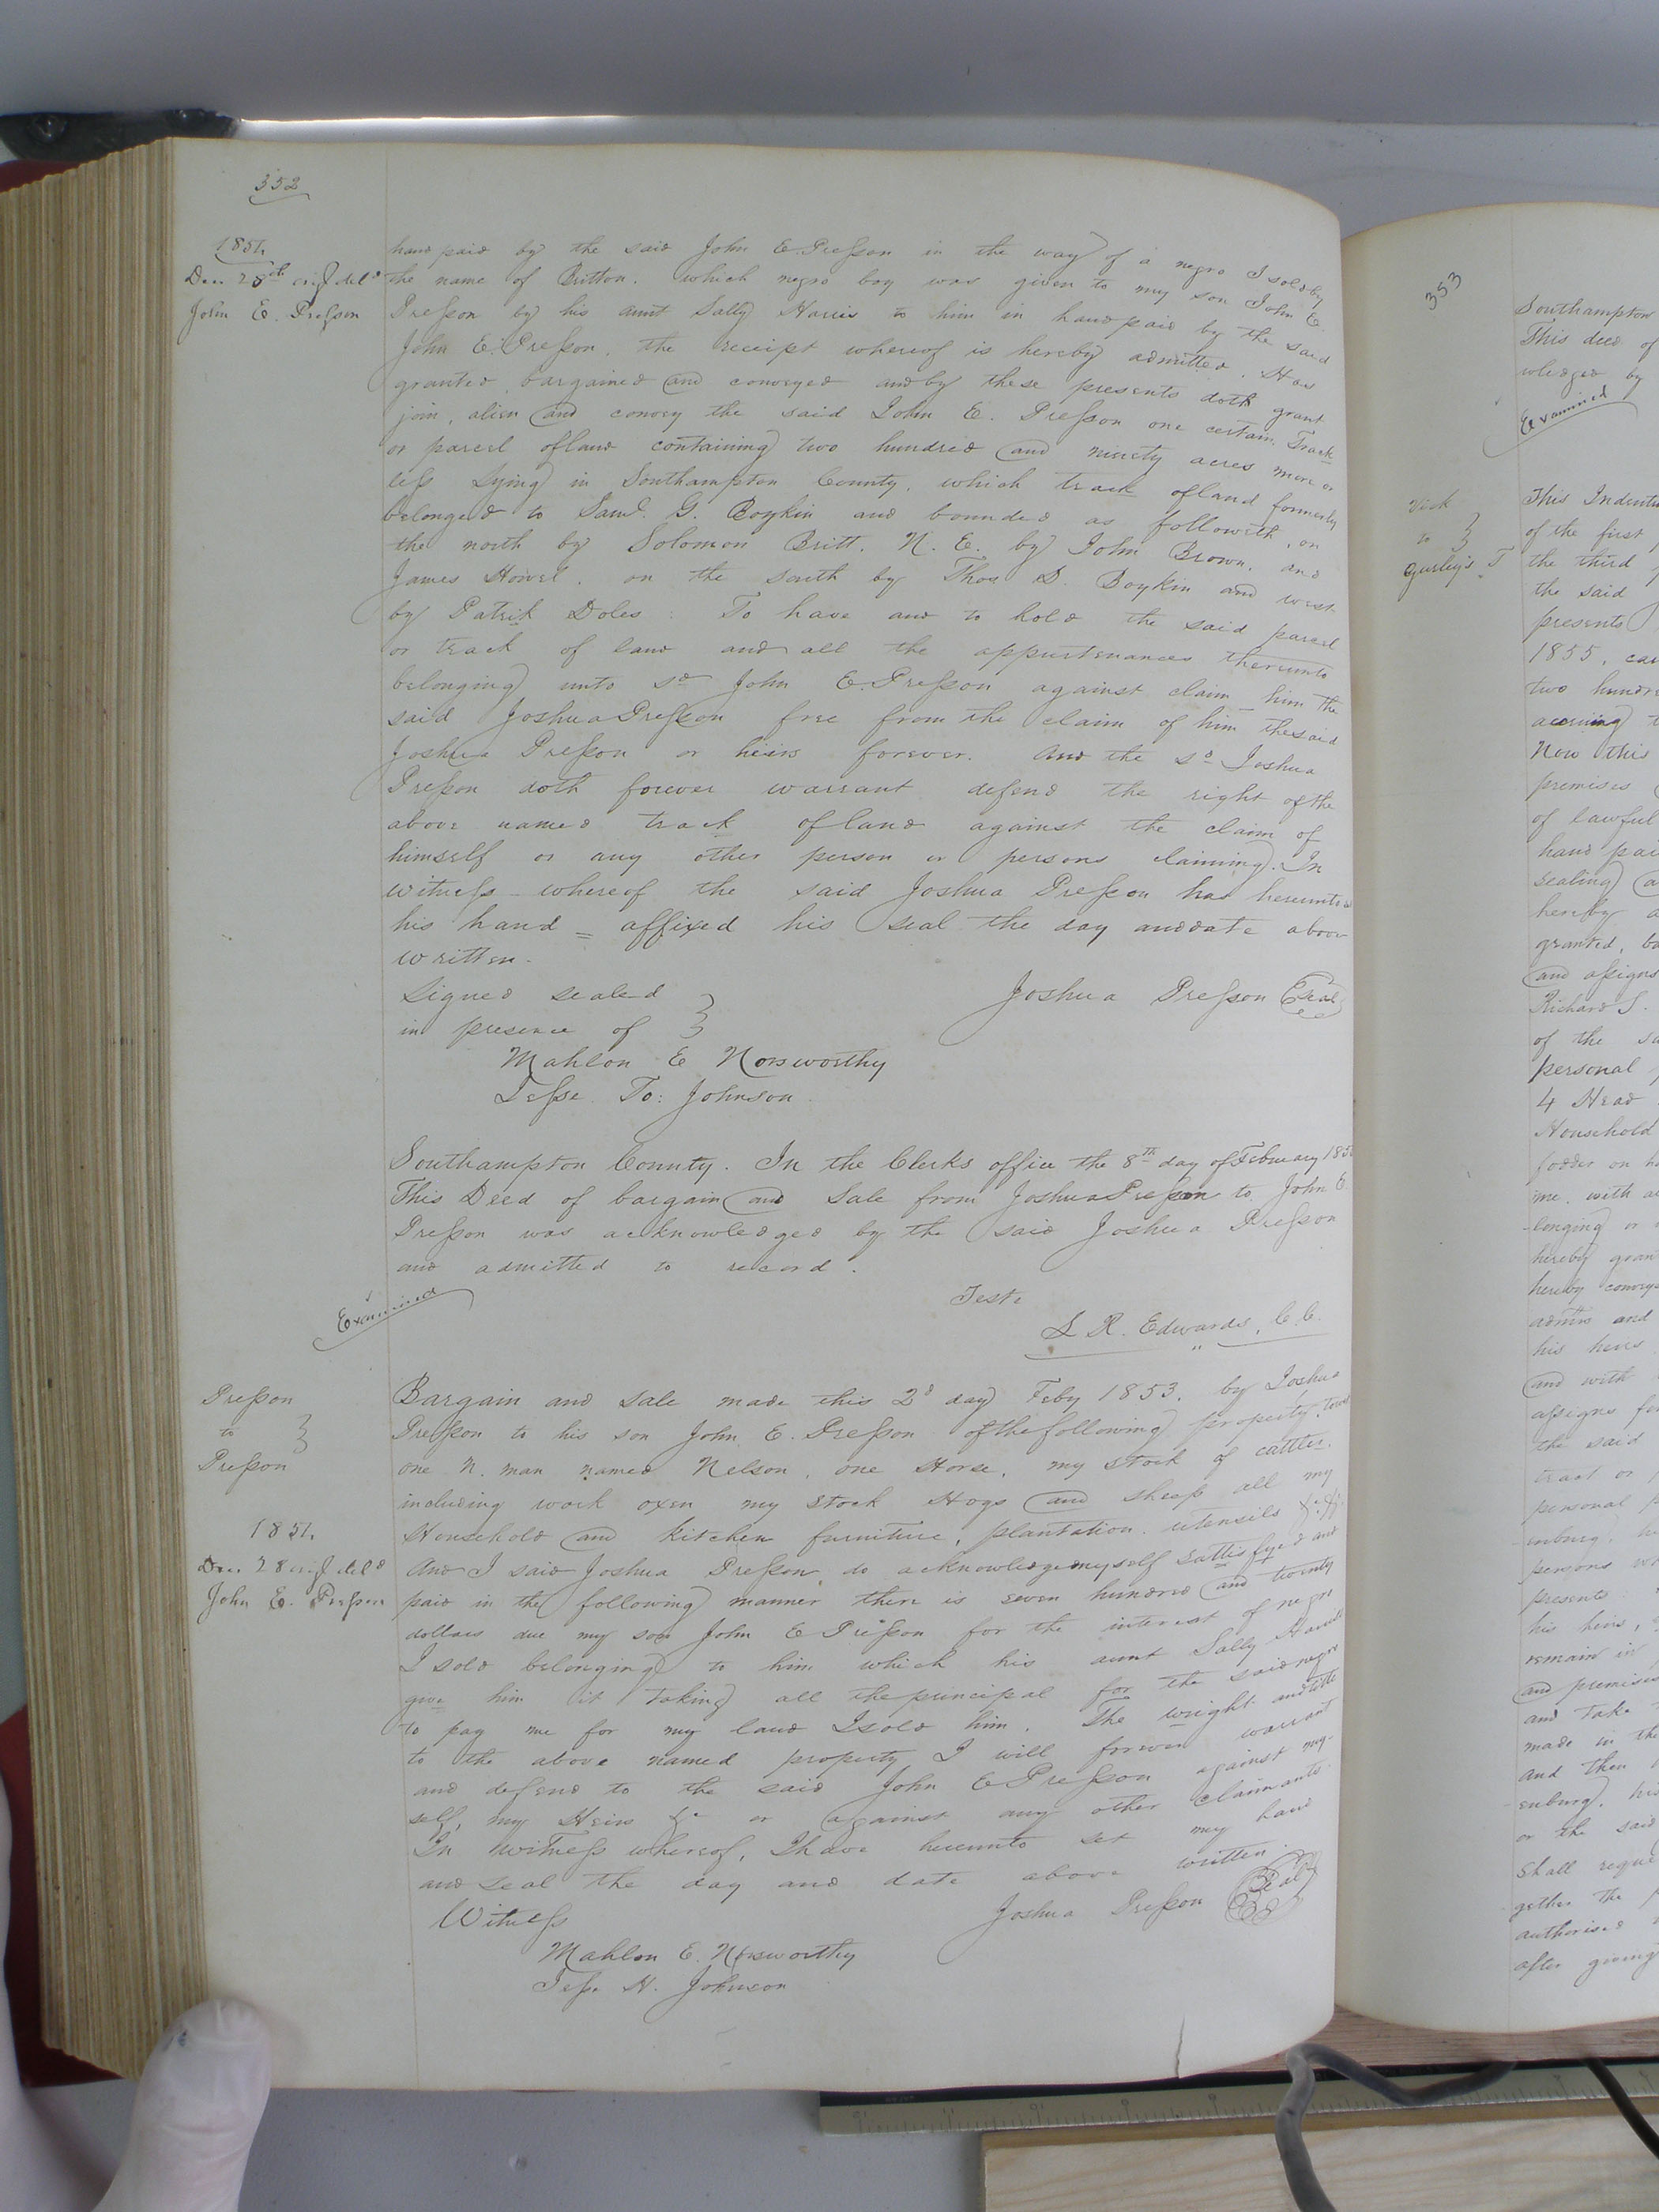 352
1854
Dec 28th orig deld
John E. Presson
hand paid by the said John E. Presson in the way of a negro I sold by
the name of Britton. which negro boy was given to my son John E.
Presson by his aunt Sally Harris to him in hand paid by the said
John E. Presson, the receipt whereof is hereby admitted. Has
granted, bargained and conveyed and by these presents doth grant
join, alien and convey the said John E. Presson one certain Track
or parcel of land containing two hundred and ninety acres more or
less Lying in Southampton County, which track of land formerly
belonged to Saml. G. Boykin and bounded as followith, on
the north by Solomon Britt. N. E. by John Brown, and
James Howel. on the south by Thos D. Boykin and west
by Patrik Doles: To have and to hold the said parcel
or track of land and all the appurtenances thereunto
belonging unto sd John E. Presson against claim him the
said Joshua Presson free from the claim of him the said
Joshua Presson or heirs forever. And the sd Joshua
Presson doth forever warrant defend the right of the
above named track of land against the claim of
himself or any other person or persons claiming. In
witness whereof the said Joshua Presson has hereunto
his hand = affixed his seal the day and date above
written.
Signed sealed
in presence of
Joshua Presson Seal
Mahlon E Norsworthy
Jesse To: Johnson.
Southampton County. In the Clerks office the 8th day of February 185
This Deed of bargain and Sale from Joshua Presson to John E
Presson was acknowledged by the said Joshua Presson
and admitted to record.
Teste
L R. Edwards, C. C.
Examined
Presson
to
Presson
1854
Dec. 28 orig deld
John E. Presson
Bargain and sale made this 2d day Feby 1853. by Joshua
Presson to his son John E. Presson of the following property, towit
one N. man named Nelson, one Horse, my stock of cattle.
including work oxen my stock Hogs and sheep all my
Household and kitchen furniture, plantation utensils &c &c.
And I said Joshua Presson, do acknowledge myself sattisfyed and
paid in the following manner there is seven hundred and twenty
dollars due my son John E Presson for the interest of negro
I sold belonging to him which his aunt Sally Harris
give him it taking all the principal for the said negro
to pay me for my land I sold him. The wright and title
to the above named property I will forever warrant
and defend to the said John E Presson against my-
self, my Heirs &c or against any other claimants.
In Witness whereof, I have hereunto set my hand
and seal the day and date above written
Witness
Joshua Presson Seal
Mahlon E. Norsworthy
Jess. H. Johnson
353
Southampton
This deed of
wledged by
Examined
Vick
to
Gurley's T
This Indentu
of the first
the third
the said
presents
1855, cau
two hundre
accruing t
Now this
premises
of lawful
hand pai
sealing
hereby a
granted, ba
and assigns
Richard S.
of the sa
personal
4 Head
Household
fodder on h
me. with a
longing or
hereby gran
hereby convey
admrs and
his heirs
and with
assigns for
the said
tract or
personal p
persons wh
presents
his heirs,
remain in
and premises
and take
made in the
and then
enburg, his
or the said
shall reque
gether the
authorised
after giving